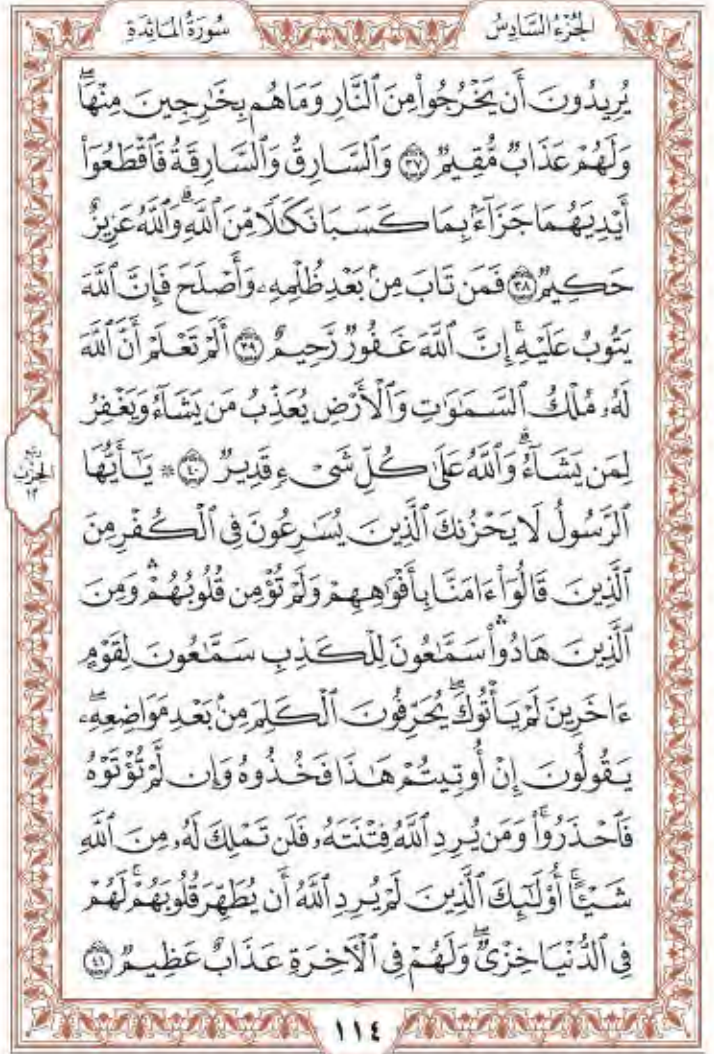 الجُزْءُ السَّادِسُ
سُورَةُ المَائِدَةِ
يُرِيدُونَ أَن يَخْرُجُوا۟ مِنَ ٱلنَّارِ وَمَا هُم بِخَٰرِجِينَ مِنْهَاۖ
وَلَهُمْ عَذَابٌ مُّقِيمٌ ٣٧ وَٱلسَّارِقُ وَٱلسَّارِقَةُ فَٱقْطَعُوٓا۟
أَيْدِيَهُمَا جَزَآءَۢ بِمَا كَسَبَا نَكَٰلًا مِّنَ ٱللَّهِۗ وَٱللَّهُ عَزِيزٌ
حَكِيمٌ ٣٨ فَمَن تَابَ مِنۢ بَعْدِ ظُلْمِهِۦ وَأَصْلَحَ فَإِنَّ ٱللَّهَ
يَتُوبُ عَلَيْهِۗ إِنَّ ٱللَّهَ غَفُورٌ رَّحِيمٌ ٣٩ أَلَمْ تَعْلَمْ أَنَّ ٱللَّهَ
لَهُۥ مُلْكُ ٱلسَّمَٰوَٰتِ وَٱلْأَرْضِ يُعَذِّبُ مَن يَشَآءُ وَيَغْفِرُ
لِمَن يَشَآءُۗ وَٱللَّهُ عَلَىٰ كُلِّ شَىْءٍ قَدِيرٌ ٤٠ ۞ يَٰٓأَيُّهَا
ٱلرَّسُولُ لَا يَحْزُنكَ ٱلَّذِينَ يُسَٰرِعُونَ فِى ٱلْكُفْرِ مِنَ
ٱلَّذِينَ قَالُوٓا۟ ءَامَنَّا بِأَفْوَٰهِهِمْ وَلَمْ تُؤْمِن قُلُوبُهُمْۛ وَمِنَ
ٱلَّذِينَ هَادُوا۟ۛ سَمَّٰعُونَ لِلْكَذِبِ سَمَّٰعُونَ لِقَوْمٍ
ءَاخَرِينَ لَمْ يَأْتُوكَۖ يُحَرِّفُونَ ٱلْكَلِمَ مِنۢ بَعْدِ مَوَاضِعِهِۦۖ
يَقُولُونَ إِنْ أُوتِيتُمْ هَٰذَا فَخُذُوهُ وَإِن لَّمْ تُؤْتَوْهُ
فَٱحْذَرُوا۟ۚ وَمَن يُرِدِ ٱللَّهُ فِتْنَتَهُۥ فَلَن تَمْلِكَ لَهُۥ مِنَ ٱللَّهِ
شَيْـًٔاۚ أُو۟لَٰٓئِكَ ٱلَّذِينَ لَمْ يُرِدِ ٱللَّهُ أَن يُطَهِّرَ قُلُوبَهُمْۚ لَهُمْ
فِى ٱلدُّنْيَا خِزْىٌۖ وَلَهُمْ فِى ٱلْءَاخِرَةِ عَذَابٌ عَظِيمٌ ٤١
ربع
الحزب
١٢
١١٤